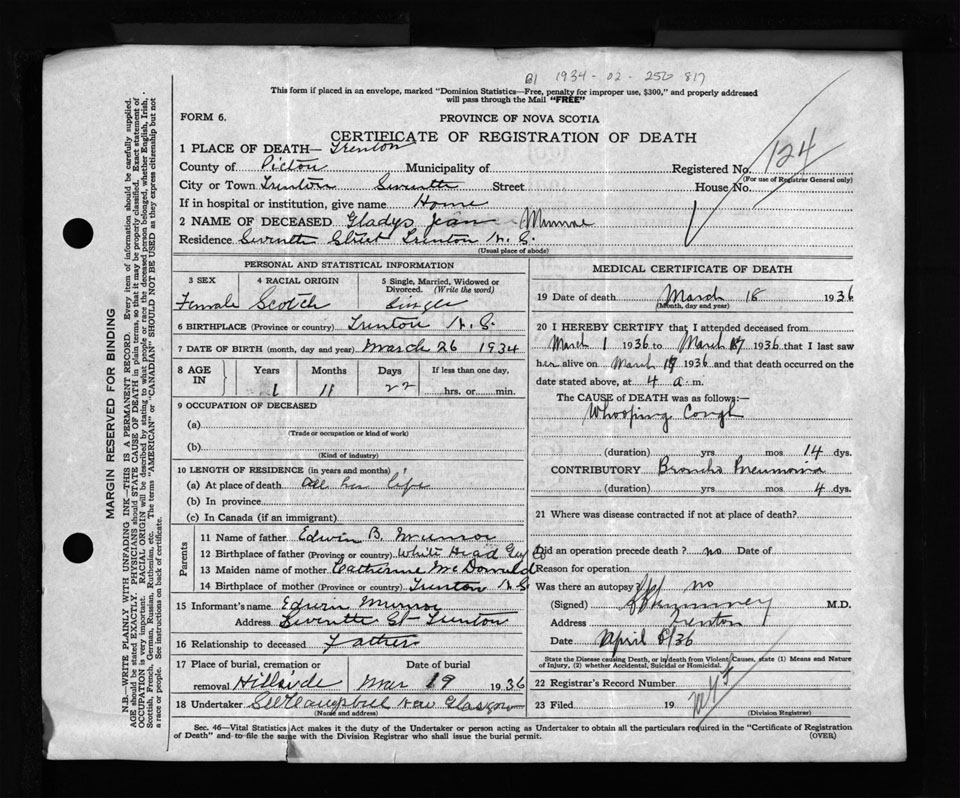 B1 1934 - 02 - 256 817
This form if placed in an envelope, marked "Dominion Statistics—Free, penalty for improper use, $300," and properly addressed
will pass through the Mail "FREE"
FORM 6.
PROVINCE OF NOVA SCOTIA
CERTIFICATE OF REGISTRATION OF DEATH
1 PLACE OF DEATH— Trenton
County of Pictou Municipality of Registered No. 124
(For use of Registrar General only)
City or Town Trenton Seventh Street House No.
If in hospital or institution, give name Home
2 NAME OF DECEASED Gladys Jean Munroe
Residence Seventh Street Trenton N.S.
(Usual place of abode)
PERSONAL AND STATISTICAL INFORMATION
3 SEX 4 RACIAL ORIGIN 5 Single, Married, Widowed or
Divorced. (Write the word)
Female Scotch Single
6 BIRTHPLACE (Province or country) Trenton N.S.
7 DATE OF BIRTH (month, day and year) March 26 1934
8 AGE IN Years Months Days If less than one day,
1 11 22 hrs. or min.
9 OCCUPATION OF DECEASED
(a)
(Trade or occupation or kind of work)
(b)
(Kind of industry)
10 LENGTH OF RESIDENCE (in years and months)
(a) At place of death all her life
(b) In province
(c) In Canada (if an immigrant)
Parents
11 Name of father Edwin B. Munroe
12 Birthplace of father (Province or country) White Head Guy Co
13 Maiden name of mother Catherine McDonald
14 Birthplace of mother (Province or country) Trenton N.S.
15 Informant's name Edwin Munroe
Address Seventh St Trenton
16 Relationship to deceased Father
17 Place of burial, cremation or Date of burial
removal Hillside Mar 19 1936
18 Undertaker Campbell New Glasgow
(Name and address)
MEDICAL CERTIFICATE OF DEATH
19 Date of death March 18 1936
(Month, day and year)
20 I HEREBY CERTIFY that I attended deceased from
March 1 1936 to March 17 1936 that I last saw
her alive on March 17 1936 and that death occurred on the
date stated above, at 4 a.m.
The CAUSE of DEATH was as follows:—
Whooping Cough
(duration) yrs mos 14 dys.
CONTRIBUTORY Broncho Pneumonia
(duration) yrs mos 4 dys.
21 Where was disease contracted if not at place of death?
Did an operation precede death? no Date of
Reason for operation
Was there an autopsy? no
(Signed) M.D.
Address Trenton
Date April 8/36
State the Disease causing Death, or in death from Violent Causes, state (1) Means and Nature
of Injury, (2) whether Accidental, Suicidal or Homicidal.
22 Registrar's Record Number
23 Filed 19
(Division Registrar)
Sec. 46—Vital Statistics Act makes it the duty of the Undertaker or person acting as Undertaker to obtain all the particulars required in the "Certificate of Registration
of Death" and to file the same with the Division Registrar who shall issue the burial permit.
(OVER)
MARGIN RESERVED FOR BINDING
N.B.—WRITE PLAINLY WITH UNFADING INK—THIS IS A PERMANENT RECORD. Every item of information should be carefully supplied.
AGE should be stated EXACTLY. PHYSICIANS should STATE CAUSE OF DEATH in plain terms, so that it may be properly classified. Exact statement of
OCCUPATION is very important. RACIAL ORIGIN will be described by stating to what people or race the deceased person belonged, whether English, Irish,
Scottish, French, German, Russian, Ruthenian, etc. The terms "AMERICAN" or "CANADIAN" SHOULD NOT BE USED as they express citizenship but not
a race or people. See instructions on back of certificate.